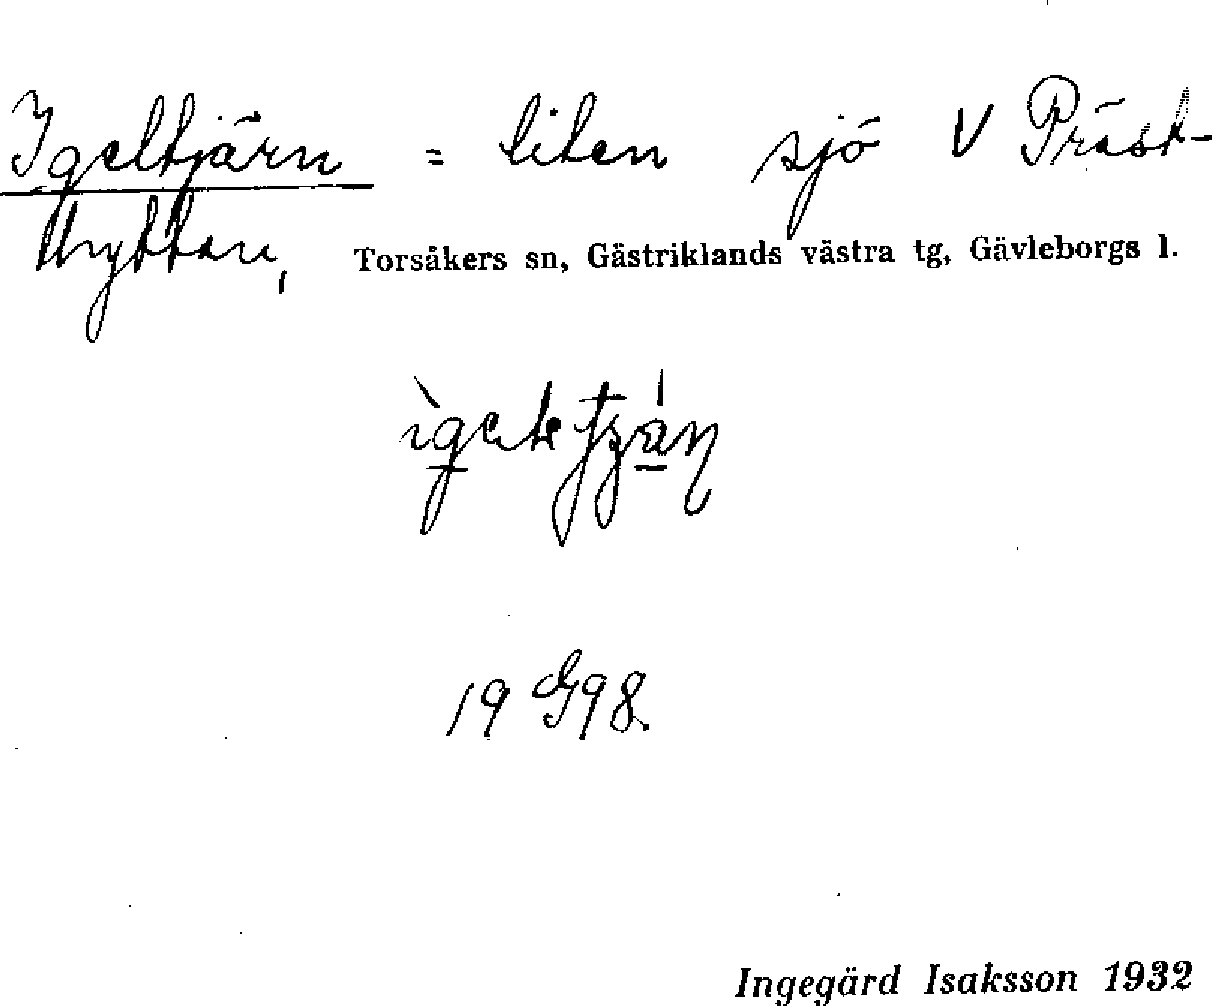 Igeltjärn = liten sjö V Präst-
hyttan, Torsåkers sn, Gästriklands västra tg, Gävleborgs l.
19 G 98.
Ingegärd Isaksson 1932